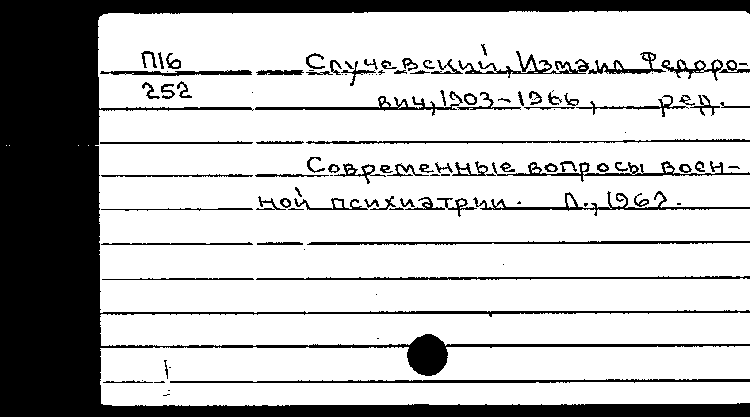 П16
252
Случевский, Измаил Федоро-
вич, 1903-1966, ред.
Современные вопросы воен-
ной психиатрии. Л., 1967.